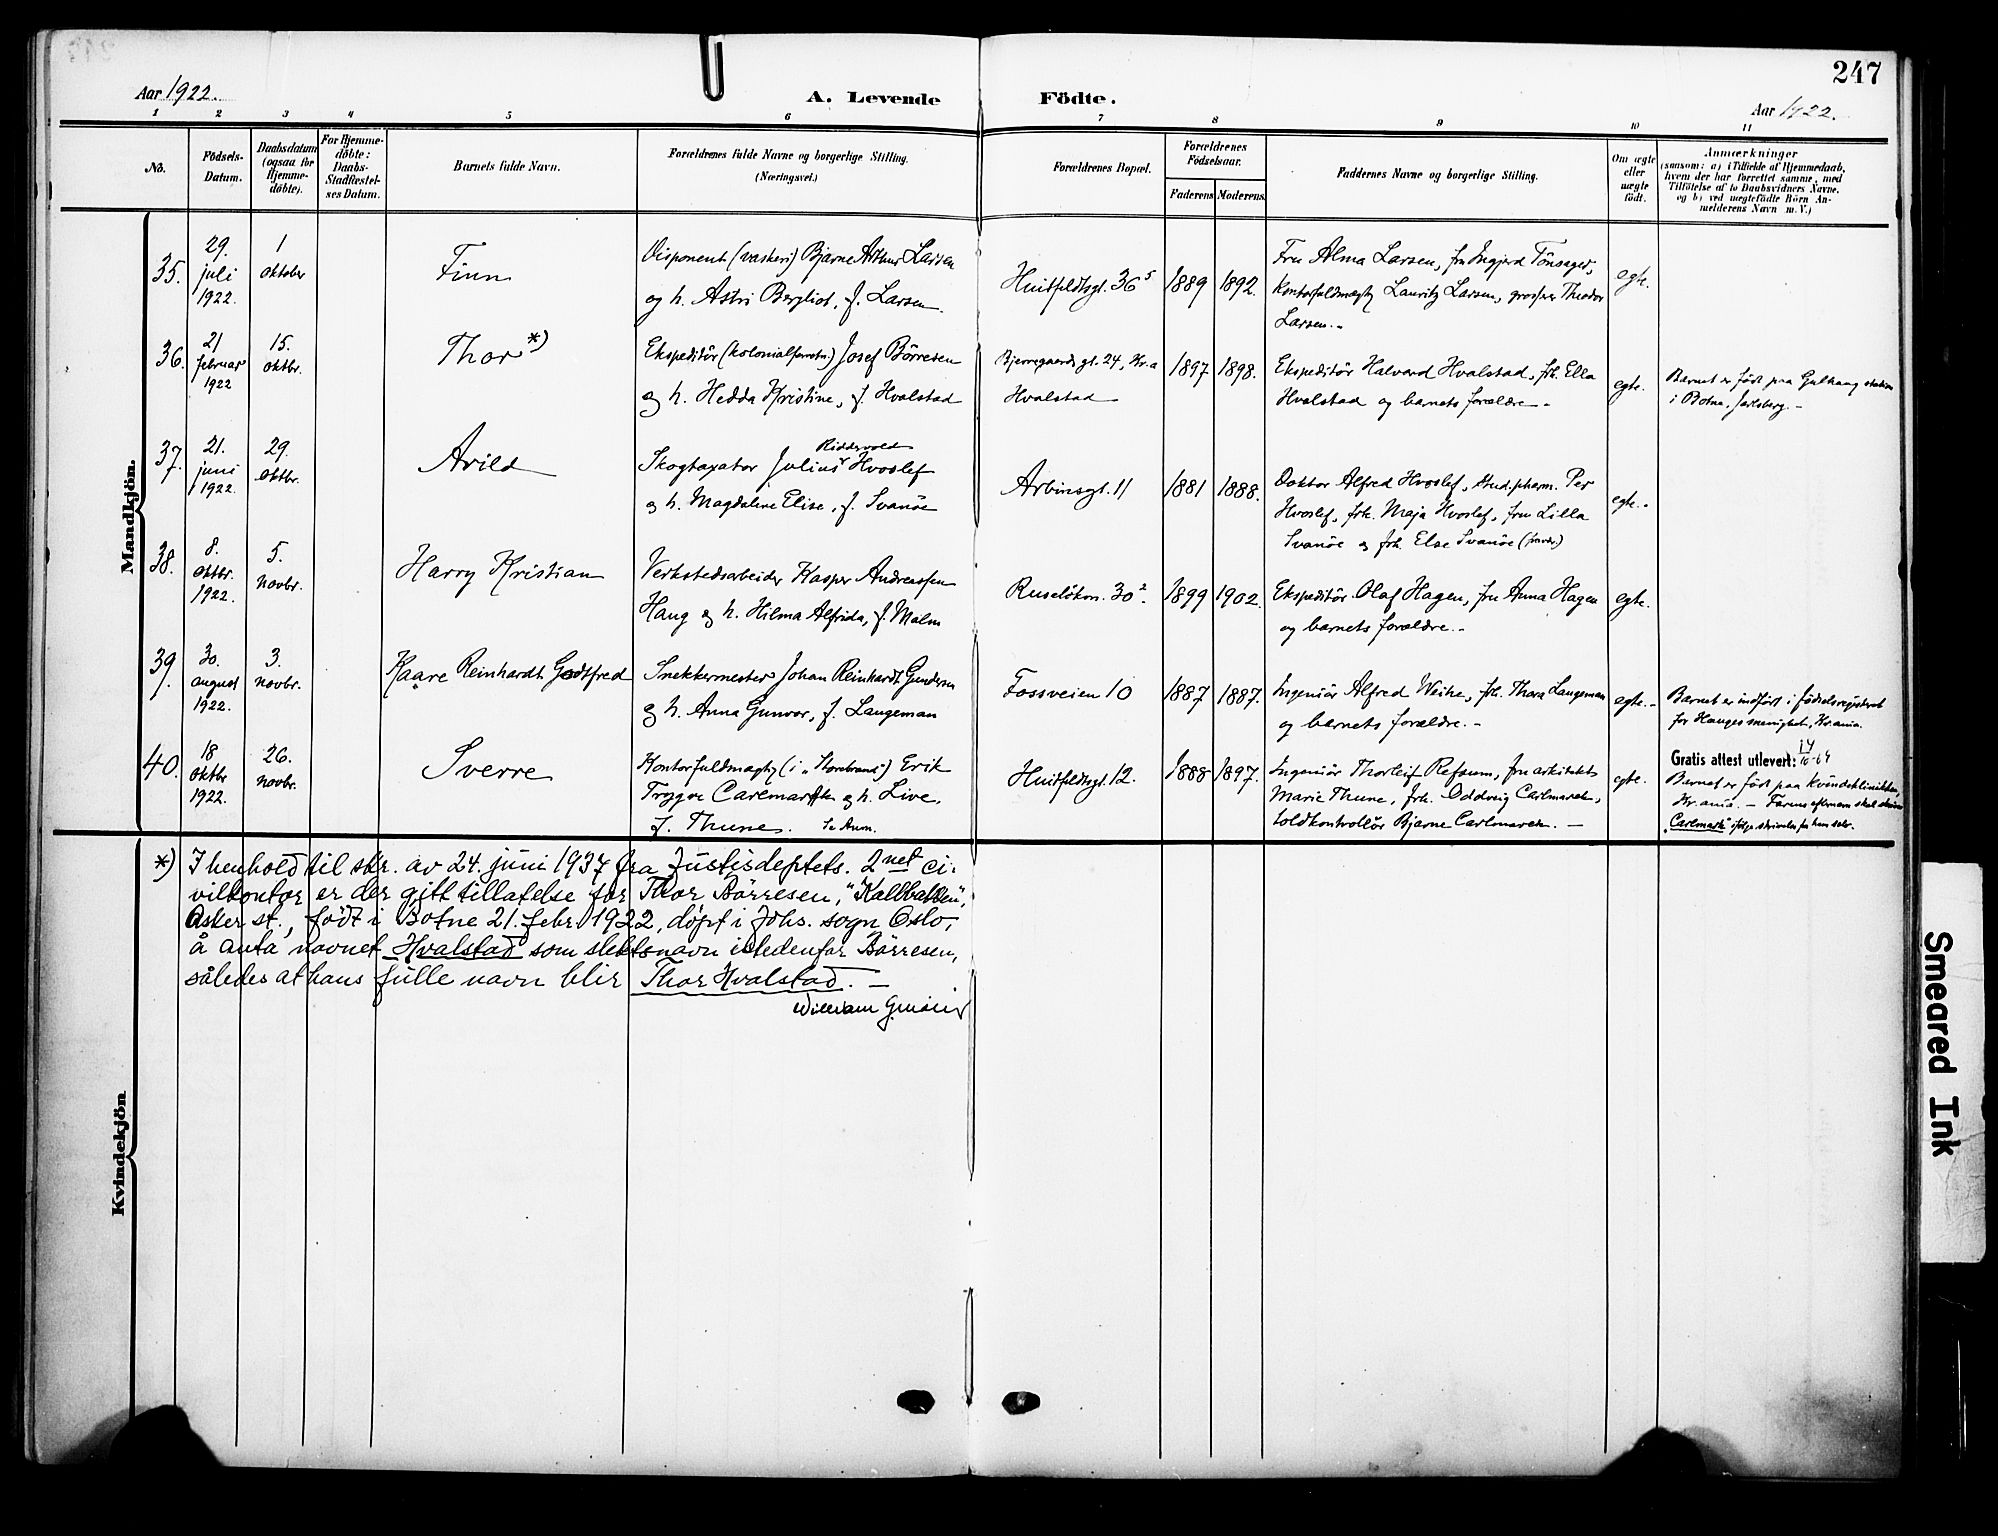 247
Aar 1922.
A. Levende Födte.
Aar 1922.
1 2 3 4 5 6 7 8 9 10 11
No.
Födsels-
Datum.
Daabsdatum
(ogsaa for
Hjemme-
döbte).
For Hjemme-
döbte:
Daabs-
Stadfæstel-
ses Datum.
Barnets fulde Navn.
Forældrenes fulde Navne og borgerlige Stilling.
(Næringsvei.)
Forældrenes Bopæl.
Forældrenes
Födselsaar.
Faderens Moderens
Faddernes Navne og borgerlige Stilling.
Om ægte
eller
uægte
födt.
Anmærkninger
(saasom: a) i Tilfælde af Hjemmedaab,
hvem der har forrettet samme, med
Tilföielse af to Daabsvidners Navne.
og b) ved uægtefödte Börn An-
melderens Navn m. V.)
Mandkjön.
35.
29.
juli
1922.
1
oktober
Finn
Disponent (vaskeri) Bjarne Arthur Larsen
og h. Astri Bergliot, f. Larsen.
Huitfeldtsgt. 36⁵
1889
1892.
Fru Alma Larsen, fru Ingjerd Tönsager,
kontorfuldmægtig Lauritz Larsen, grosserer Theodor
Larsen.-
egte.
36.
21
februar
1922
15.
oktbr.
Thor *)
Ekspeditör (kolonialforretn.) Josef Börresen
og h. Hedda Kristine, f. Hvalstad
Bjerregaards gt. 24, Kr.a
Hvalstad
1897
1898.
Ekspeditör Halvard Hvalstad, frk. Ella
Hvalstad og barnets forældre.-
egte.
Barnet er födt paa Gulhaug station
i Botne, Jarlsberg.-
37.
21.
juni
1922.
29.
oktbr.
Arild
Riddervold
Skogtaxator Julius Hvoslef
og h. Magdalene Elise, f. Svanöe
Arbinsgt. 11
1881
1888.
Doktor Alfred Hvoslef, stud. pharm. Per
Hvoslef, frk. Maja Hvoslef, fru Lilla
Svanöe og frk. Else Svanöe
egte.-
38.
8.
oktbr.
1922.
5.
novbr.
Harry Kristian
Verkstedsarbeider Kasper Andreassen
Haug og h. Hilma Alfrida, f. Malm
Ruselökvn. 30².
1899
1902.
Ekspeditör Olaf Hagen, fru Anna Hagen
og barnets forældre.-
egte.
39.
30.
august
1922.
3.
novbr.
Kaare Reinhardt Godtfred
Snekkermester Johan Reinhardt Gundersen
og h. Anna Gunvor, f. Langeman
Fossveien 10
1887
1887.
Ingeniör Alfred Weihe, frk. Thora Langeman
og barnets forældre.-
egte.-
Barnet er indfört i födselsregistret
for Hauges menighet, Kr.ania.
40.
18
oktbr
1922.
26.
novbr.
Sverre
Kontorfuldmægtig (i „Storebrand") Erik
Trygve Carlmark og h. Live,
f. Thune. Se Anm.
Huitfeldtsgt. 12.
1888
1897.
Ingeniör Thorleif Refsum, fru arkitekt
Marie Thune, frk. Oddveig Carlmarck,
toldkontrollör Bjarne Carlmarck.-
egte.
Gratis attest utlevert: 14/10-64
Barnet er födt paa Kvindeklinikken,
Kr.ania.- Farens efternavn skal skrives
„Carlmark" ifölge skrivelse fra ham selv.
Kvindekjön
*) I henhold til skr. av 24. juni 1937 fra Justisdeptets. 2net ci-
vilkontor er der gitt tillatelse for Thor Börresen, "Kallbakken",
Asker st., födt i Botne 21. febr. 1922, döpt i Johs. sogn Oslo,
å anta navnet Hvalstad som slektsnavn istedenfor Börresen,
således at hans fulle navn blir Thor Hvalstad.-
Smeared Ink